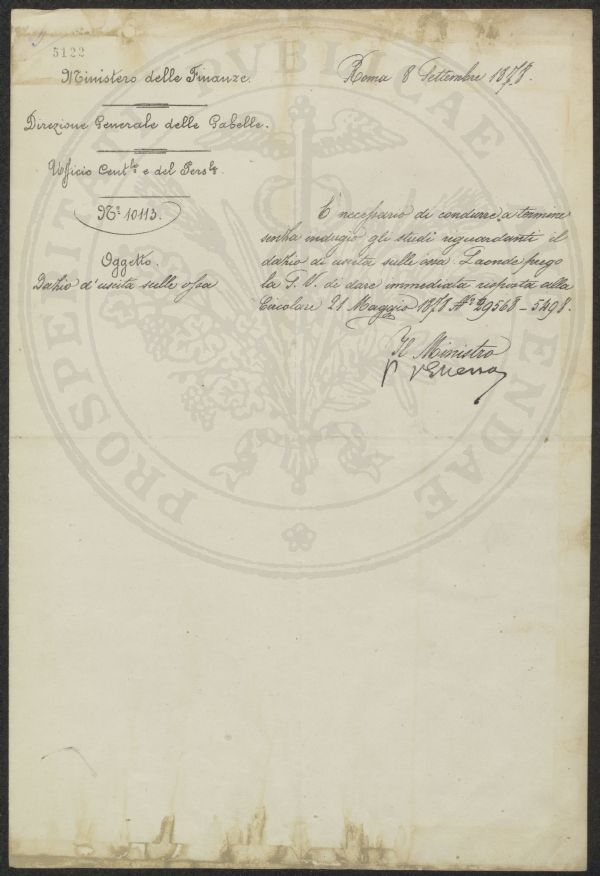 5122
Ministero delle Finanze.
Direzione Generale delle Gabelle.
Ufficio Cent.le e del Pers.le
N.° 10113.
Oggetto.
Dazio d'uscita sulle ossa
Roma 8 Settembre 1878.
È necessario di condurre a termine
senza indugio gli studi riguardanti il
dazio di uscita sulle ossa. Laonde prego
la S. V. di dare immediata risposta alla
Circolare 21 Maggio 1878 N.° 29568-5498.
Il Ministro
PROSPERITATI PUBLICAE AUGENDAE